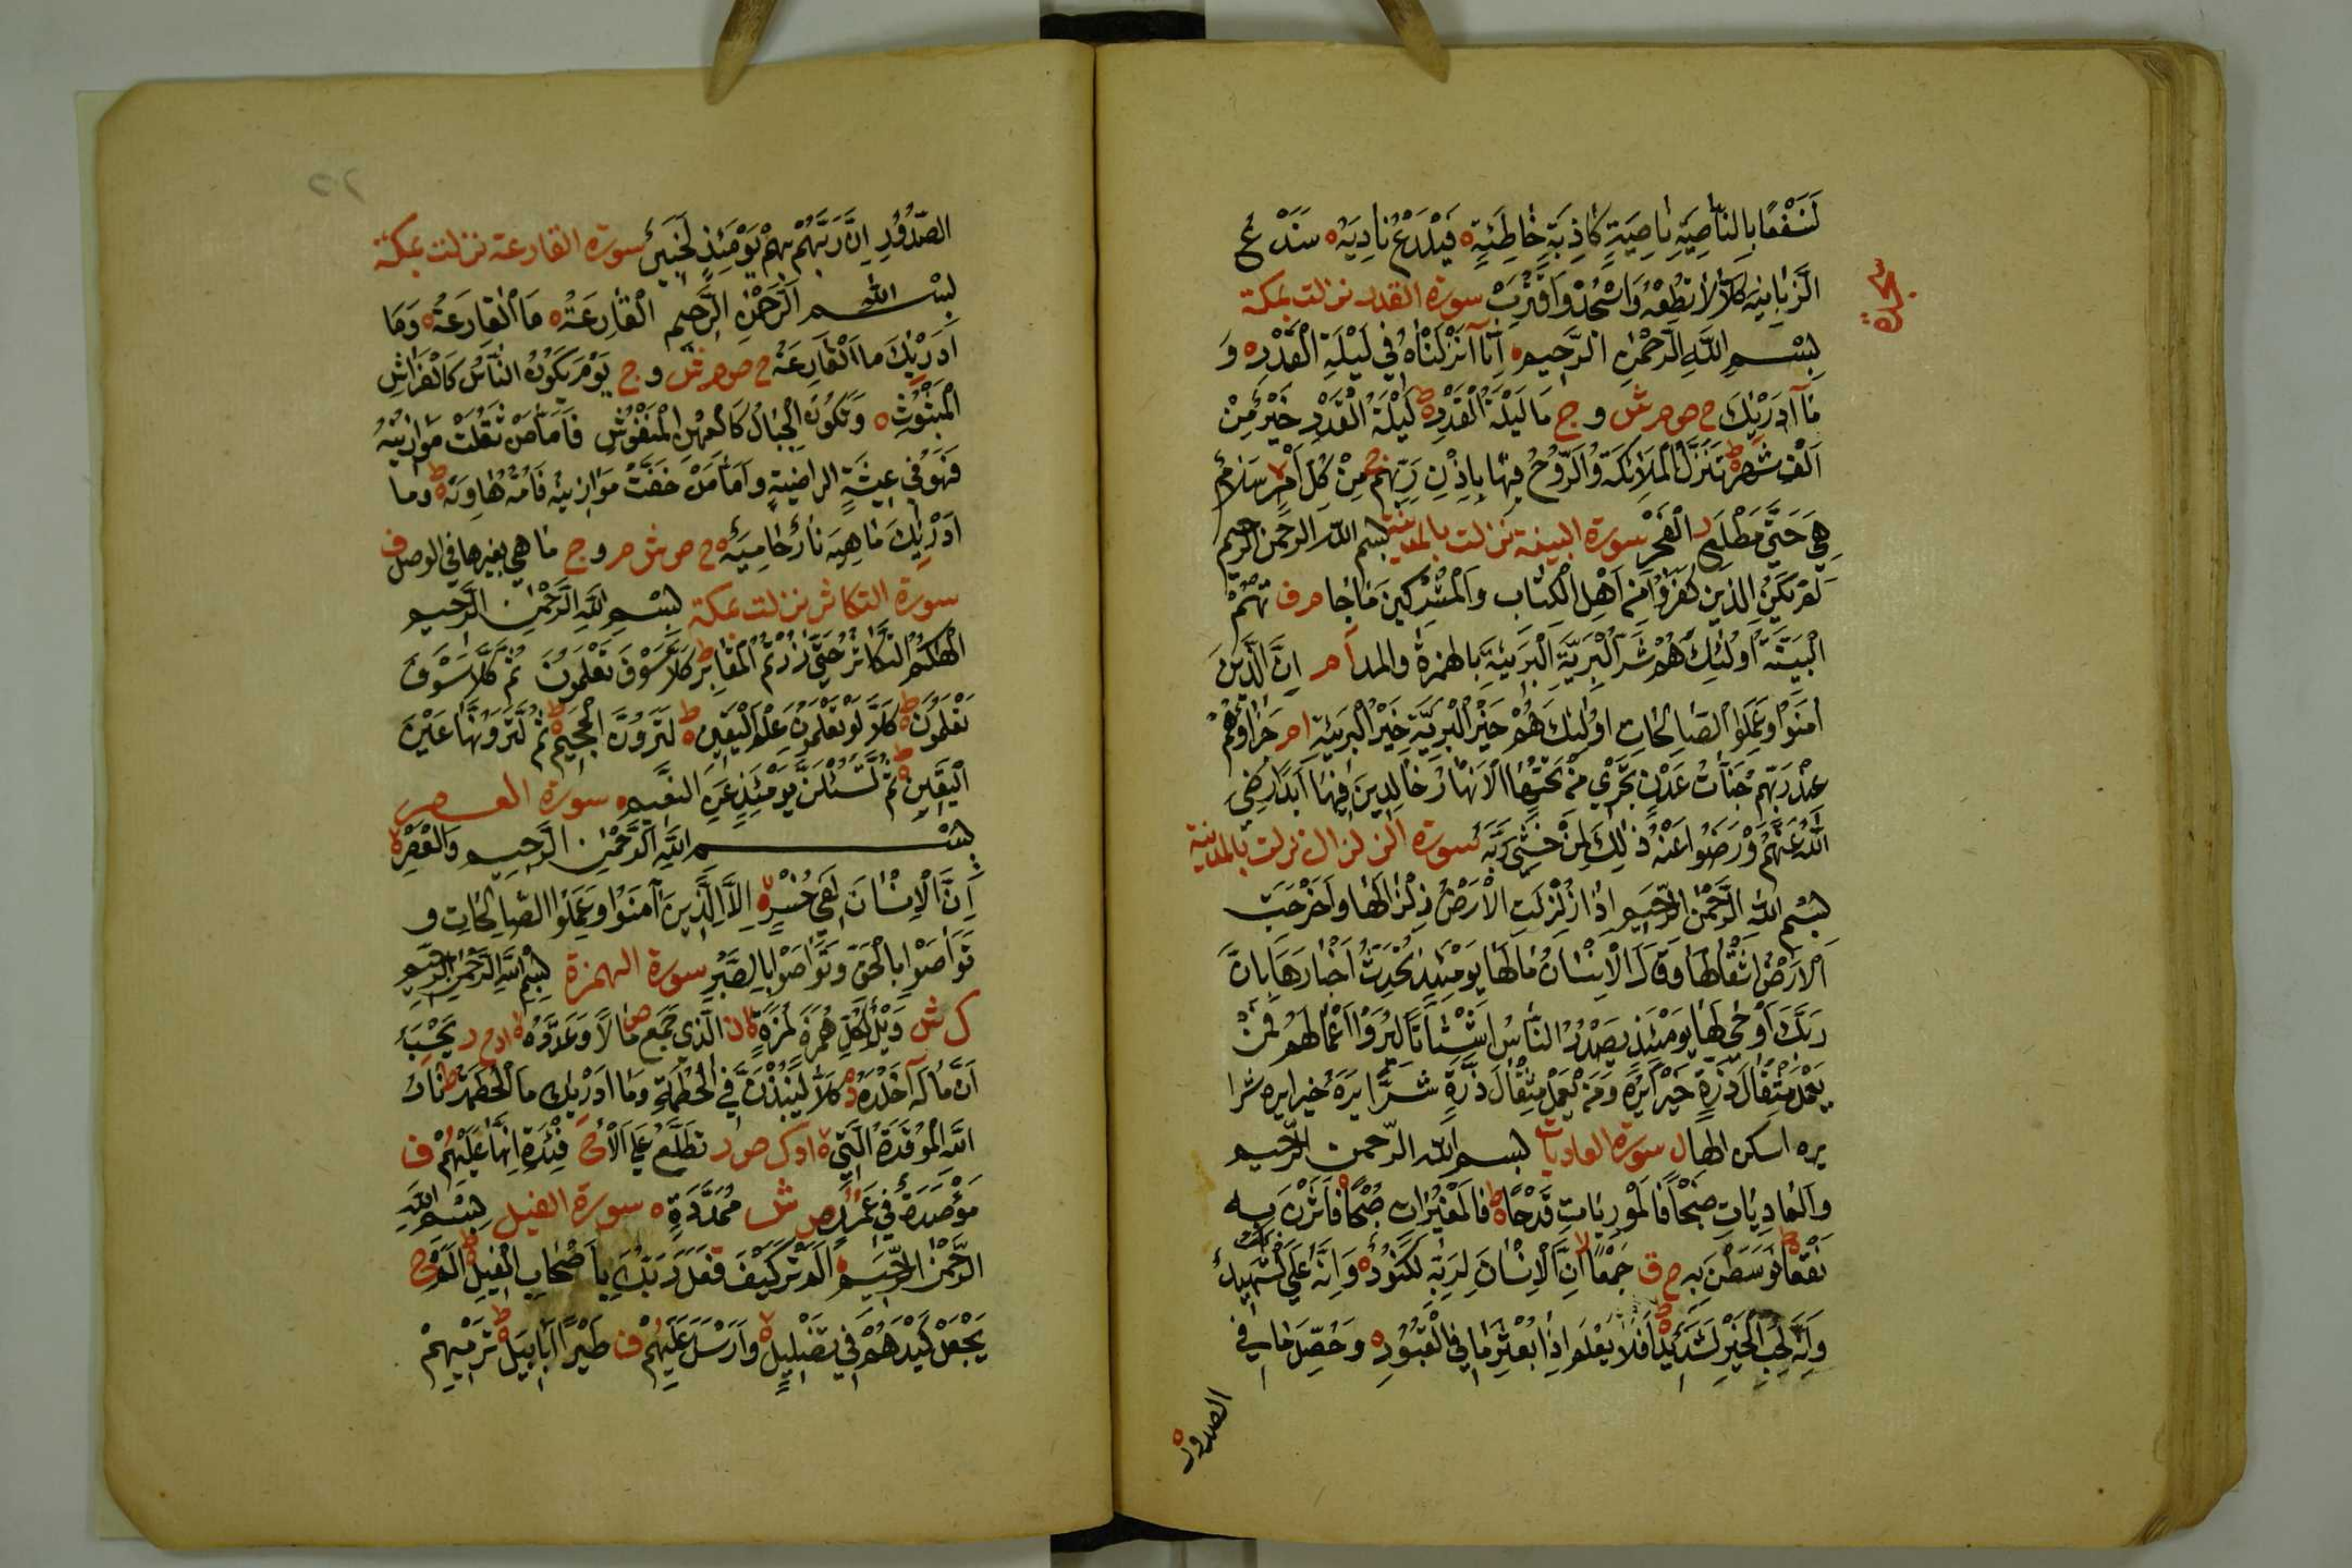 لَنَسْفَعًا بِالنَّاصِيَةِ نَاصِيَةٍ كَاذِبَةٍ خَاطِئَةٍ ه فَلْيَدْعُ نَادِيَهُ ه سَنَدْعُ
الزَّبَانِيَه كَلَّا لَا تُطِعْهُ وَاسْجُدْ وَاقْتَرِبْ سورة القدر نزلت بمكة
سجدة
بِسْمِ اللَّهِ الرَّحْمٰنِ الرَّحِيمِ ه اِنَّا اَنْزَلْنَاهُ فِي لَيْلَةِ الْقَدْرِ ه وَ
مَا اَدْرٰيكَ ح ص م ش و ج مَا لَيْلَةُ الْقَدْرِ ط لَيْلَةُ الْقَدْرِ خَيْرٌ مِنْ
اَلْفِ شَهْرٍ ط تَنَزَّلُ الْمَلَائِكَةُ وَالرُّوحُ فِيهَا بِاِذْنِ رَبِّهِمْ ج مِنْ كُلِّ اَمْرٍ سَلَامٌ
هِيَ حَتّٰي مَطْلَعِ الْفَجْرِ سورة البينة نزلت بالمدينة بسم الله الرحمن الرحيم
لَمْ يَكُنِ الَّذِينَ كَفَرُوا مِنْ اَهْلِ الْكِتَابِ وَالْمُشْرِكِينَ مَا جَا م ف تْهُمُ
الْبَيِّنَةُ اُولٰئِكَ هُمْ شَرُّ الْبَرِيَّةِ الْبَرِيئَةِ بالهمزة والمد ا م اِنَّ الَّذِينَ
اٰمَنُوا وَعَمِلُوا الصَّالِحَاتِ اُولٰئِكَ هُمْ خَيْرُ الْبَرِيَّةِ خَيْرُ الْبَرِيئَةِ ا م جَزَاؤُهُمْ
عِنْدَ رَبِّهِمْ جَنَّاتُ عَدْنٍ تَجْرِي مِنْ تَحْتِهَا الْاَنْهَارُ خَالِدِينَ فِيهَا اَبَدًا رَضِيَ
اللَّهُ عَنْهُمْ وَرَضُوا عَنْهُ ذٰلِكَ لِمَنْ خَشِيَ رَبَّهُ سورة الزلزال نزلت بالمدينة
بِسْمِ اللَّهِ الرَّحْمٰنِ الرَّحِيمِ اِذَا زُلْزِلَتِ الْاَرْضُ زِلْزَالَهَا وَاَخْرَجَتِ
الْاَرْضُ اَثْقَالَهَا وَقَالَ الْاِنْسَانُ مَا لَهَا يَوْمَئِذٍ تُحَدِّثُ اَخْبَارَهَا بِاَنَّ
رَبَّكَ اَوْحٰى لَهَا يَوْمَئِذٍ يَصْدُرُ النَّاسُ اَشْتَاتًا لِيُرَوْا اَعْمَالَهُمْ فَمَنْ
يَعْمَلْ مِثْقَالَ ذَرَّةٍ خَيْرًا يَرَهُ وَمَنْ يَعْمَلْ مِثْقَالَ ذَرَّةٍ شَرًّا يَرَهُ خيرا يره شرا
يره اسكن الها ل سورة العاديات بسم الله الرحمن الرحيم
وَالْعَادِيَاتِ ضَبْحًا فَالْمُورِيَاتِ قَدْحًا ط فَالْمُغِيرَاتِ صُبْحًا فَاَثَرْنَ بِهِ
نَقْعًا فَوَسَطْنَ بِهِ ح ق جَمْعًا لا اِنَّ الْاِنْسَانَ لِرَبِّهِ لَكَنُودٌ ه وَاِنَّهُ عَلٰي ذٰلِكَ لَشَهِيدٌ
وَاِنَّهُ لِحُبِّ الْخَيْرِ لَشَدِيدٌ ط اَفَلَا يَعْلَمُ اِذَا بُعْثِرَ مَا فِي الْقُبُورِ ه وَحُصِّلَ مَا فِي
الصدور
الصُّدُورِ اِنَّ رَبَّهُمْ بِهِمْ يَوْمَئِذٍ لَخَبِيرٌ سورة القارعة نزلت بمكة
بِسْمِ اللهِ الرَّحْمٰنِ الرَّحِيمِ الْقَارِعَةُ ه مَا الْقَارِعَةُ ه وَمَا
اَدْرٰيكَ مَا الْقَارِعَةُ ح ص م ش و ج يَوْمَ يَكُونُ النَّاسُ كَالْفَرَاشِ
الْمَبْثُوثِ ه وَتَكُونُ الْجِبَالُ كَالْعِهْنِ الْمَنْفُوشِ فَاَمَّا مَنْ ثَقُلَتْ مَوَازِينُهُ
فَهُوَ فِي عِيشَةٍ الراضية وَاَمَّا مَنْ خَفَّتْ مَوَازِينُه فَاُمُّهُ هَاوِيَةٌ ط وما
اَدْرٰيكَ مَا هِيَه نَارٌ حَامِيَةٌ ه ح ص ش م و ج مَا هي بغيرها في الوصل ف
سورة التكاثر نزلت بمكة بِسْمِ اللَّهِ الرَّحْمٰنِ الرَّحِيمِ
اَلْهٰكُمُ التَّكَاثُرُ حَتّٰي زُرْتُمُ الْمَقَابِرَ ط كَلَّا سَوْفَ تَعْلَمُونَ ثُمَّ كَلَّا سَوْفَ
تَعْلَمُونَ ط كَلَّا لَوْ تَعْلَمُونَ عِلْمَ الْيَقِينِ ط لَتَرَوُنَّ الْجَحِيمَ ط ثُمَّ لَتَرَوُنَّهَا عَيْنَ
الْيَقِينِ ط ثُمَّ لَتُسْئَلُنَّ يَوْمَئِذٍ عَنِ النَّعِيمِ ه سورة العصر
بِسْمِ اللَّهِ الرَّحْمٰنِ الرَّحِيمِ وَالْعَصْرِ لا
اِنَّ الْاِنْسَانَ لَفِي خُسْرٍ لا اِلَّا الَّذِينَ اٰمَنُوا وَعَمِلُوا الصَّالِحَاتِ وَ
تَوَاصَوْا بِالْحَقِّ وَتَوَاصَوْا بِالصَّبْرِ سورة الهمزة بِسْمِ اللَّهِ الرَّحْمٰنِ الرَّحِيمِ
ك ش وَيْلٌ لِكُلِّ هُمَزَةٍ لُمَزَةٍ ن الَّذِي جَمَعَ مَالًا وَعَدَّدَهُ لا ا و ح ر يَحْسِبُ
اَنَّ مَالَهُ اَخْلَدَهُ كَلَّا لَيُنْبَذَنَّ فِي الْحُطَمَةِ وَمَا اَدْرٰيكَ مَا الْحُطَمَةُ ط نَارُ
اللَّهِ الْمُوقَدَةُ الَّتِي لا ا و ك ص ر تَطَّلِعُ عَلَي الْاَفْئِدَةِ اِنَّهَا عَلَيْهِمْ ف
مُؤْصَدَةٌ فِي عَمَدٍ ص ش مُمَدَّدَةٍ ه سورة الفيل بِسْمِ اللهِ
الرَّحْمٰنِ الرَّحِيمِ اَلَمْ تَرَ كَيْفَ فَعَلَ رَبُّكَ بِاَصْحَابِ الْفِيلِ ط اَلَمْ
يَجْعَلْ كَيْدَهُمْ فِي تَضْلِيلٍ لا وَاَرْسَلَ عَلَيْهِمْ ف طَيْرًا اَبَابِيلَ ط تَرْمِيهِمْ